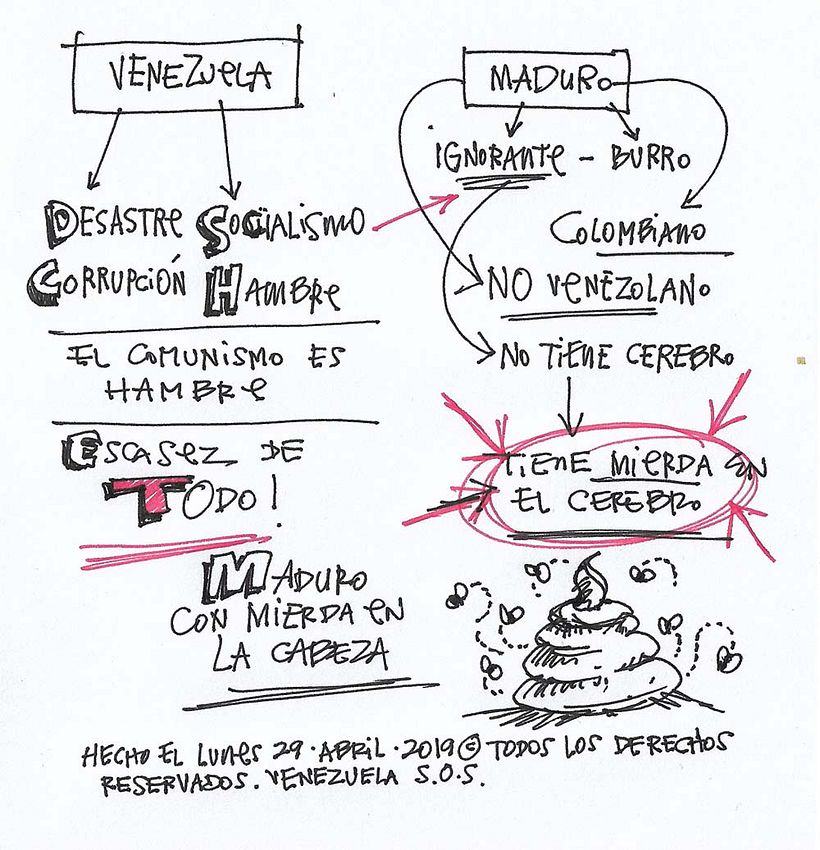 VENEZUELA
DESASTRE SOCIALISMO
CORRUPCIÓN HAMBRE
EL COMUNISMO ES
HAMBRE
ESCASEZ DE
TODO!
MADURO
CON MIERDA EN
LA CABEZA
MADURO
IGNORANTE - BURRO
COLOMBIANO
NO VENEZOLANO
NO TIENE CEREBRO
TIENE MIERDA EN
EL CEREBRO
HECHO EL LUNES 29 · ABRIL · 2019 © TODOS LOS DERECHOS
RESERVADOS. VENEZUELA S.O.S.